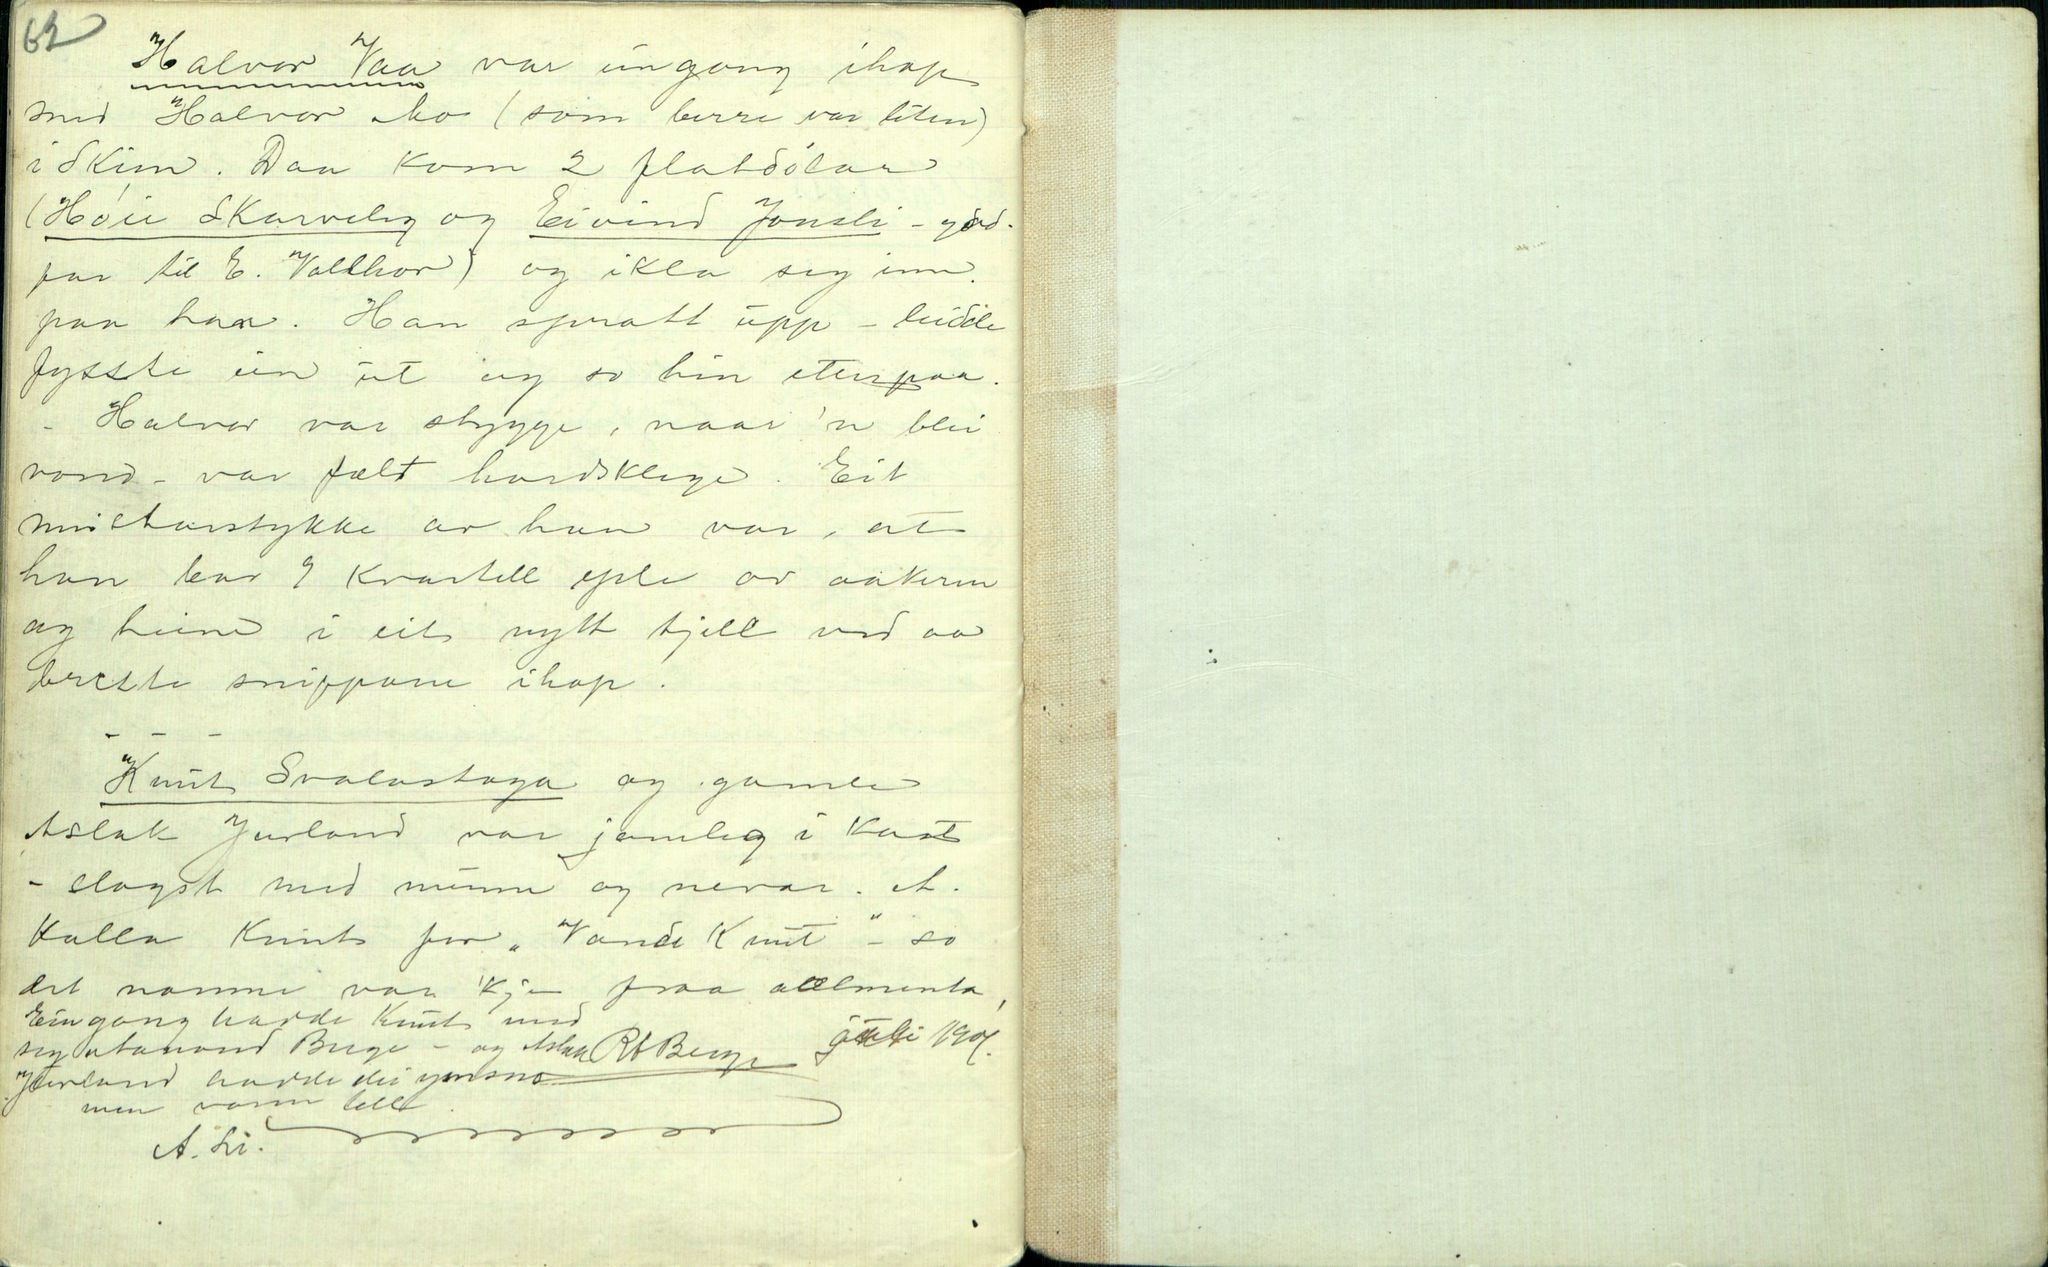 62
Halvor Vaa var eingong ihop
med Halvor Mo (som berre var liten)
i Skien. Daa kom 2 flatdølar
(Høie Skarveleg og Eivind Jonsli - god-
far til E. Vallhov) og ikla seg inn
paa han. Han spratt upp - leidde
fysste ein ut og so hin etterpaa.
- Halvor var stygge, naar 'n blei
vond - var fælt hardsklege. Eit
meistarstykke av han var, at
han bar 9 kvartell eple av aakeren
og heim i eit nytt tjell ved aa
brette snippane ihop.
- - -
Knut Svalastoga og gamle
Aslak Jurland var jamleg i kast
- slogst med munn og nevar. A.
kalla Knut for „Vonde Knut" - so
det namne var 'kje fraa allmenta.
Ein gong hadde Knut med
seg Berge - og Aslak
Jurland hadde dei
men vann lell.
A. Li.
Rt Berge juli 190